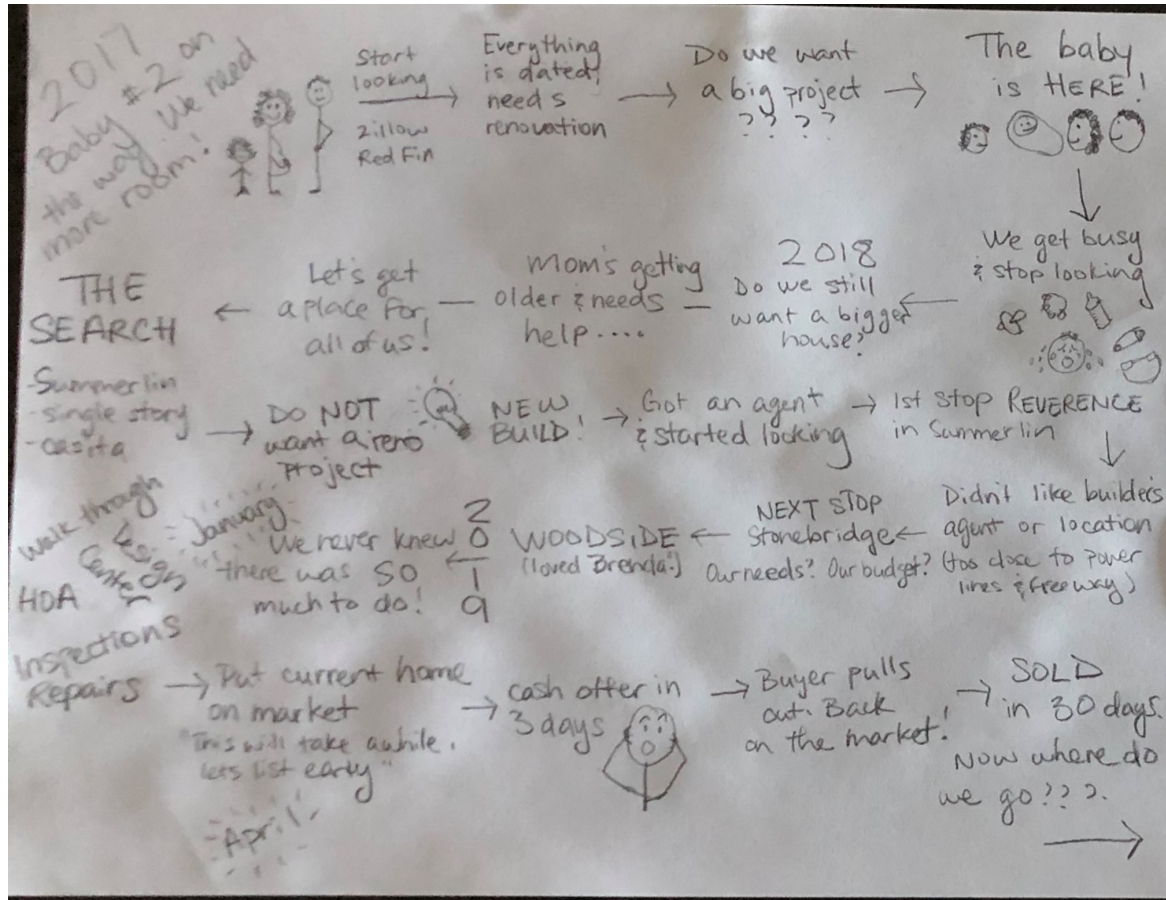 2017
Baby #2 on
the way. We need
more room!
Start
looking
Zillow
Red Fin
Everything
is dated!
needs
renovation
Do we want
a big project
? ? ? ?
The baby
is HERE!
We get busy
& stop looking
2018
Do we still
want a bigger
house?
Mom's getting
older & needs
help....
Let's get
a place for
all of us!
THE
SEARCH
-Summerlin
-single story
-casita
DO NOT
want a reno
project
NEW
BUILD!
Got an agent
& started looking
1st stop REVERENCE
in Summerlin
Didn't like builder's
agent or location
(too close to power
lines & freeway)
NEXT STOP
Stonebridge
Our needs? Our budget?
WOODSIDE
(loved Brenda!)
2
0
1
9
January
We never knew
there was so
much to do!
Walk through
Design
Center
HOA
Inspections
Repairs
Put current home
on market
"This will take awhile,
lets list early"
April
cash offer in
3 days
Buyer pulls
out. Back
on the market!
SOLD
in 30 days.
Now where do
we go???.